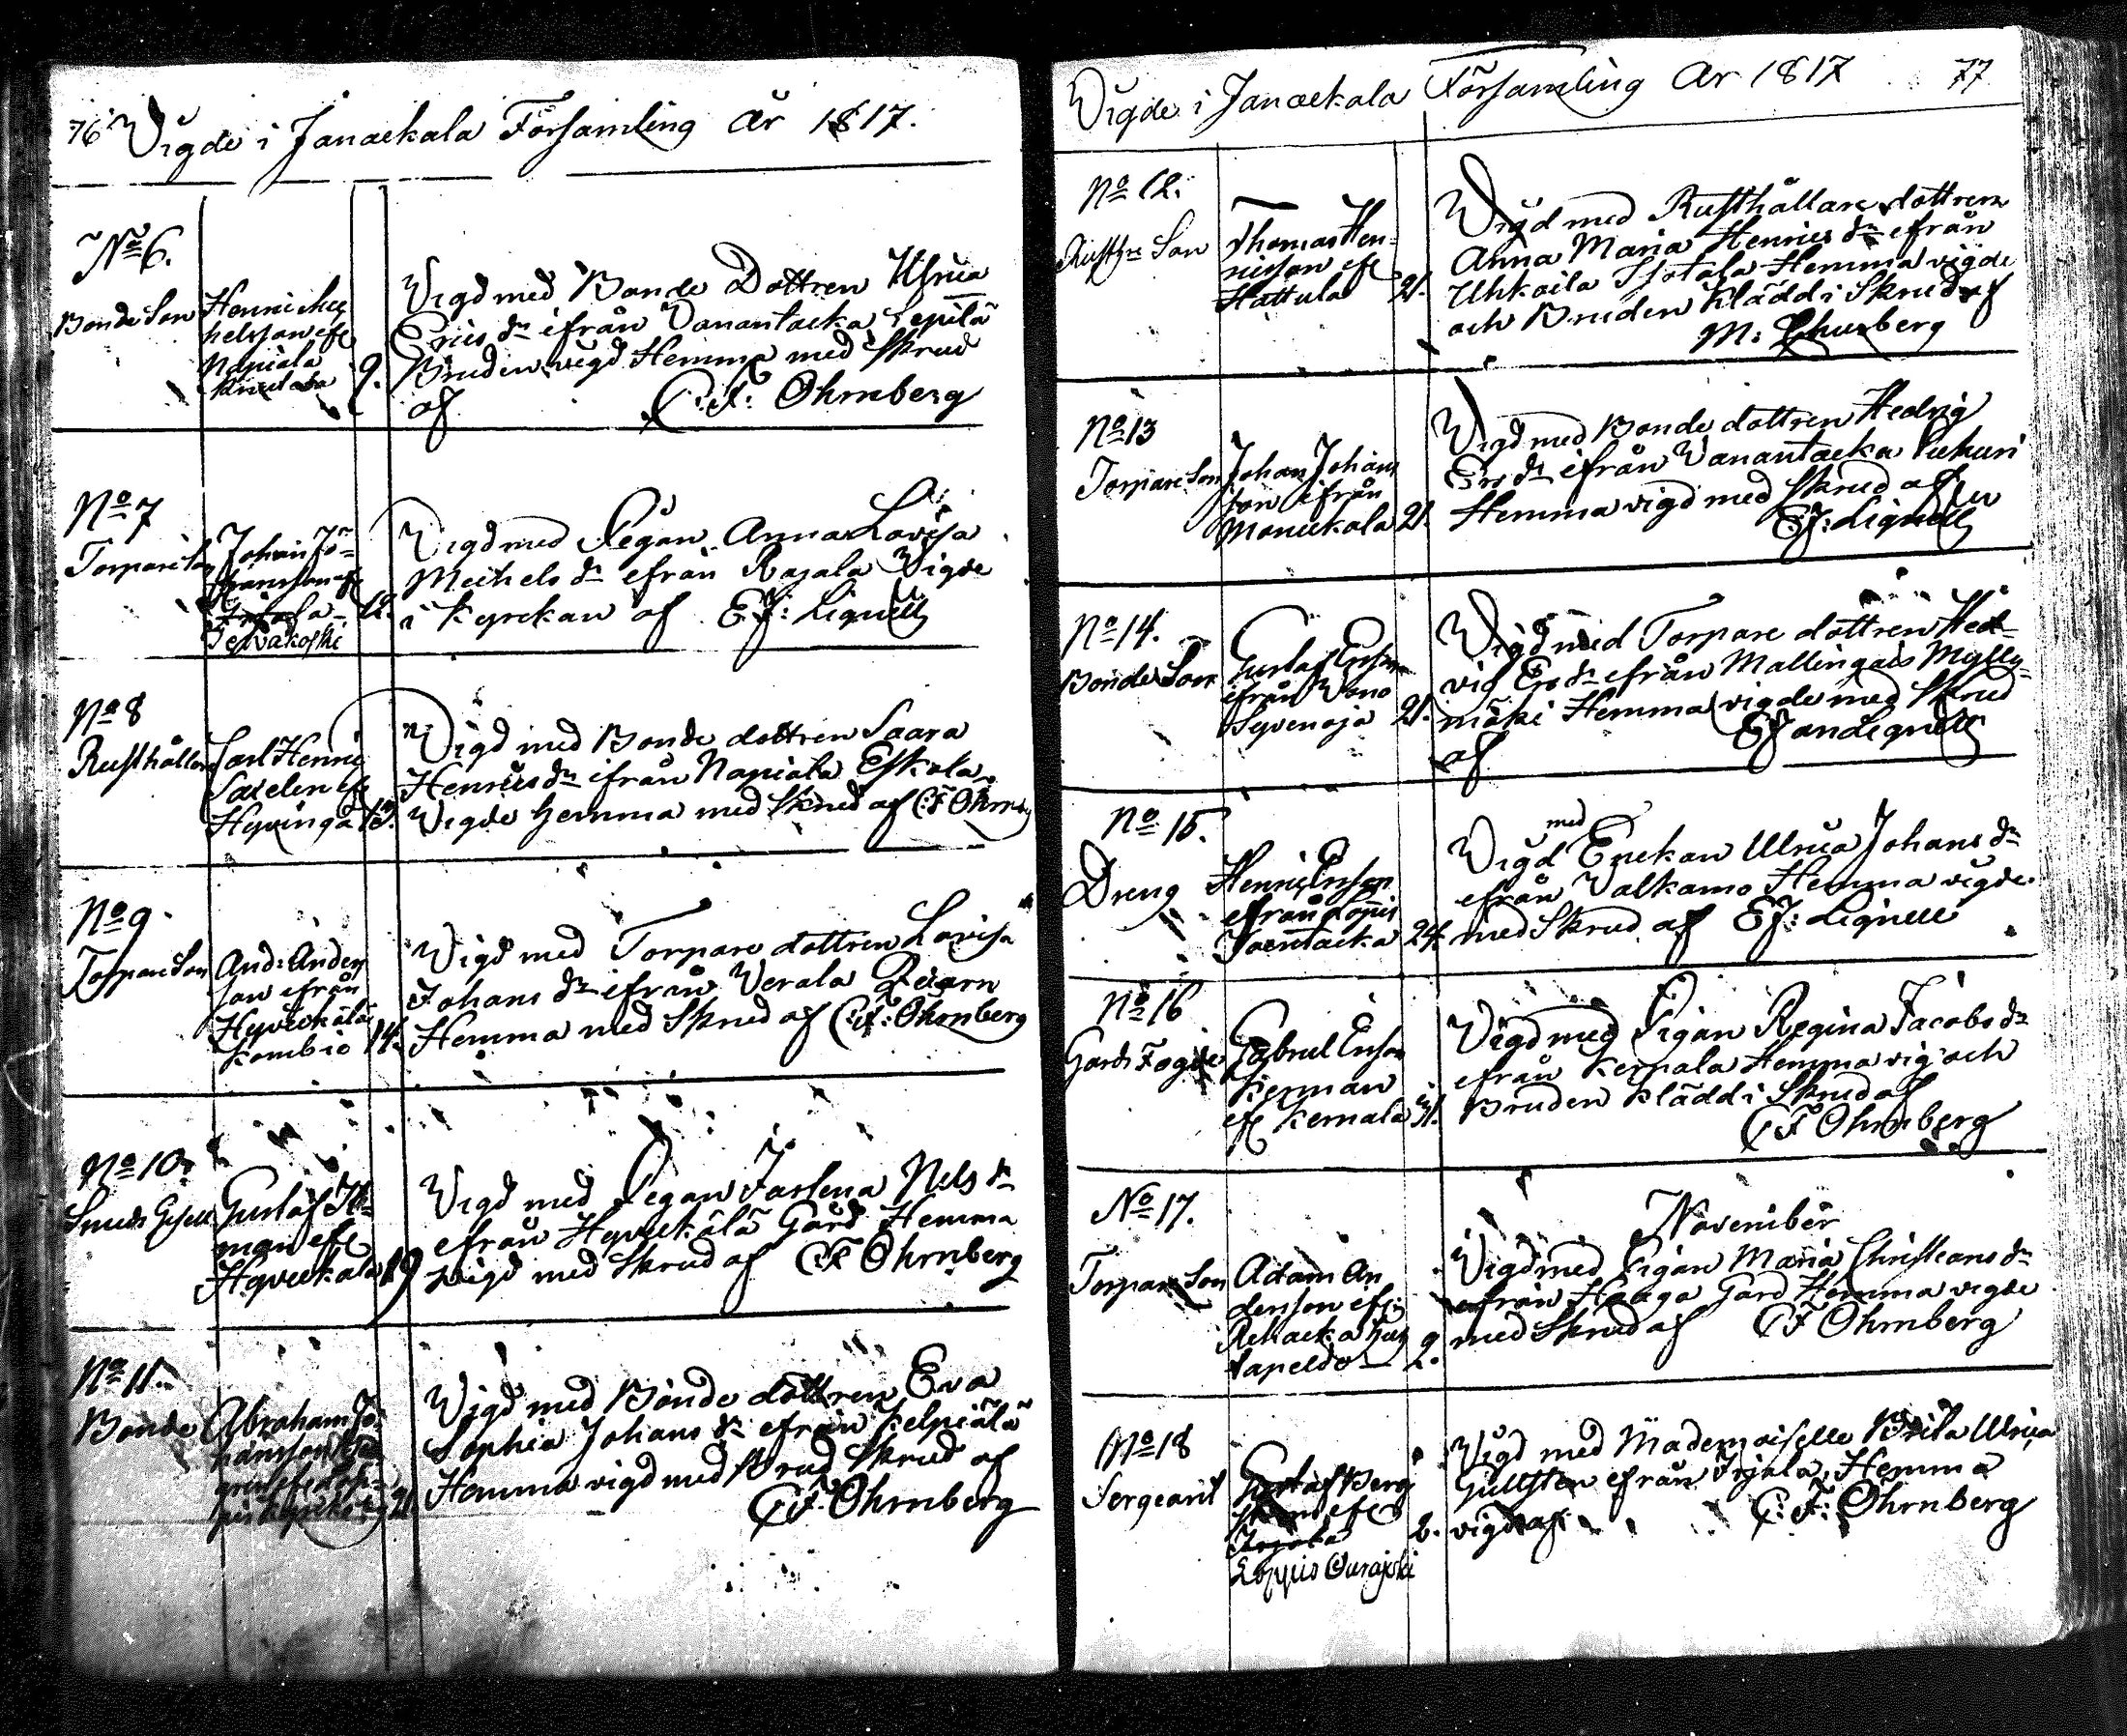 76 Vigde i Janackala Församling År 1817.
No 6.
Bonde Son
Henric Mic
helsson ifr
Napiala
9.
Vigd med Bonde Dottren Ulrica
Erics dr ifrån Vanantacka Sepilä
Bruden vigd Hemma med Skrud
af C:F: Öhrnberg
No 7
Torpare Son
Johan Jo=
hansson ifr
12.
Vigd med Pigan Anna Lovisa
Michels dr ifrån Rajala Vigde
i Kyrckan af E J: Lignell
No 8
Rusthållare
Carl Henric
ifr
Hyvinga
13.
Vigd med Bonde dottren Saara
Henrics dr ifrån Napiala Eskola
Vigde Hemma med Skrud af C:F Öhrnb
No 9.
Torpare Son
And: Anders
son ifrån
Hyvickälä
Kombio
14.
Vigd med Torpare dottren Lovisa
Johans dr ifrån Verala
Hemma med Skrud af C:F: Öhrnberg
No 10.
Smeds Gesell
Gustaf
man ifr
Hyvickälä
19
Vigd med Pigan Nils dr
ifrån Hyvickälä Gård Hemma
Vigd med Skrud af C F Öhrnberg
No 11.
Bonde
Abraham Jo=
hansson
21.
Vigd med Bonde dottren Eva
Sophia Johans dr ifrån Kelpiälä
Hemma vigd med Brud Skrud af
C:F: Öhrnberg
Vigde i Janackala Församling År 1817 77
No 12.
Rusth:rs Son
Thomas Hen=
ricsson ifr
Hattula
21.
Vigd med Rusthållare dottren
Anna Maria Henrics dr ifrån
Uhkoila Isotalo Hemma vigde
och Bruden Klädd i Skrud af
M: Churberg
No 13
Torpare Son
Johan Johans
son ifrån
Monickala
21.
Vigd med Bonde dottren Hedvig
Ers dr ifrån Vanantacka
Hemma vigd med Skrud af
E J: Lignell
No 14.
Bonde Son
Gustaf Ersson
ifrån Vono
Syvenoja
21.
Vigd med Torpare dottren Hed=
vig Ers dr ifrån Mallingais Mylly=
mäki Hemma vigde med Skrud
af
No 15.
Dreng
Henric Ersson
ifrån Loppis
24.
med
Vigd Enckan Ulrica Johans dr
ifrån Valkamo Hemma vigde
med Skrud af E J: Lignell
No 16
Gårds Fogde
Gabriel Ersson
ifr Kernala
31.
Vigd med Pigan Regina Jacobs dr
ifrån Kernala Hemma vig och
Bruden Klädd i Skrud af
C F Öhrnberg
No 17.
Torpare Son
Adam An
dersson ifr
2.
November
Vigd med Pigan Maria Christians dr
ifrån Haaga Gård Hemma vigde
med Skrud af C F Öhrnberg
No 18
Sergeant
Gustaf Berg
ifr
Irjala
Loppis
2.
Vigd med Mademoiselle Brita Ulrica
Gullsten ifrån Irjala Hemma
vigd af C: F: Öhrnberg